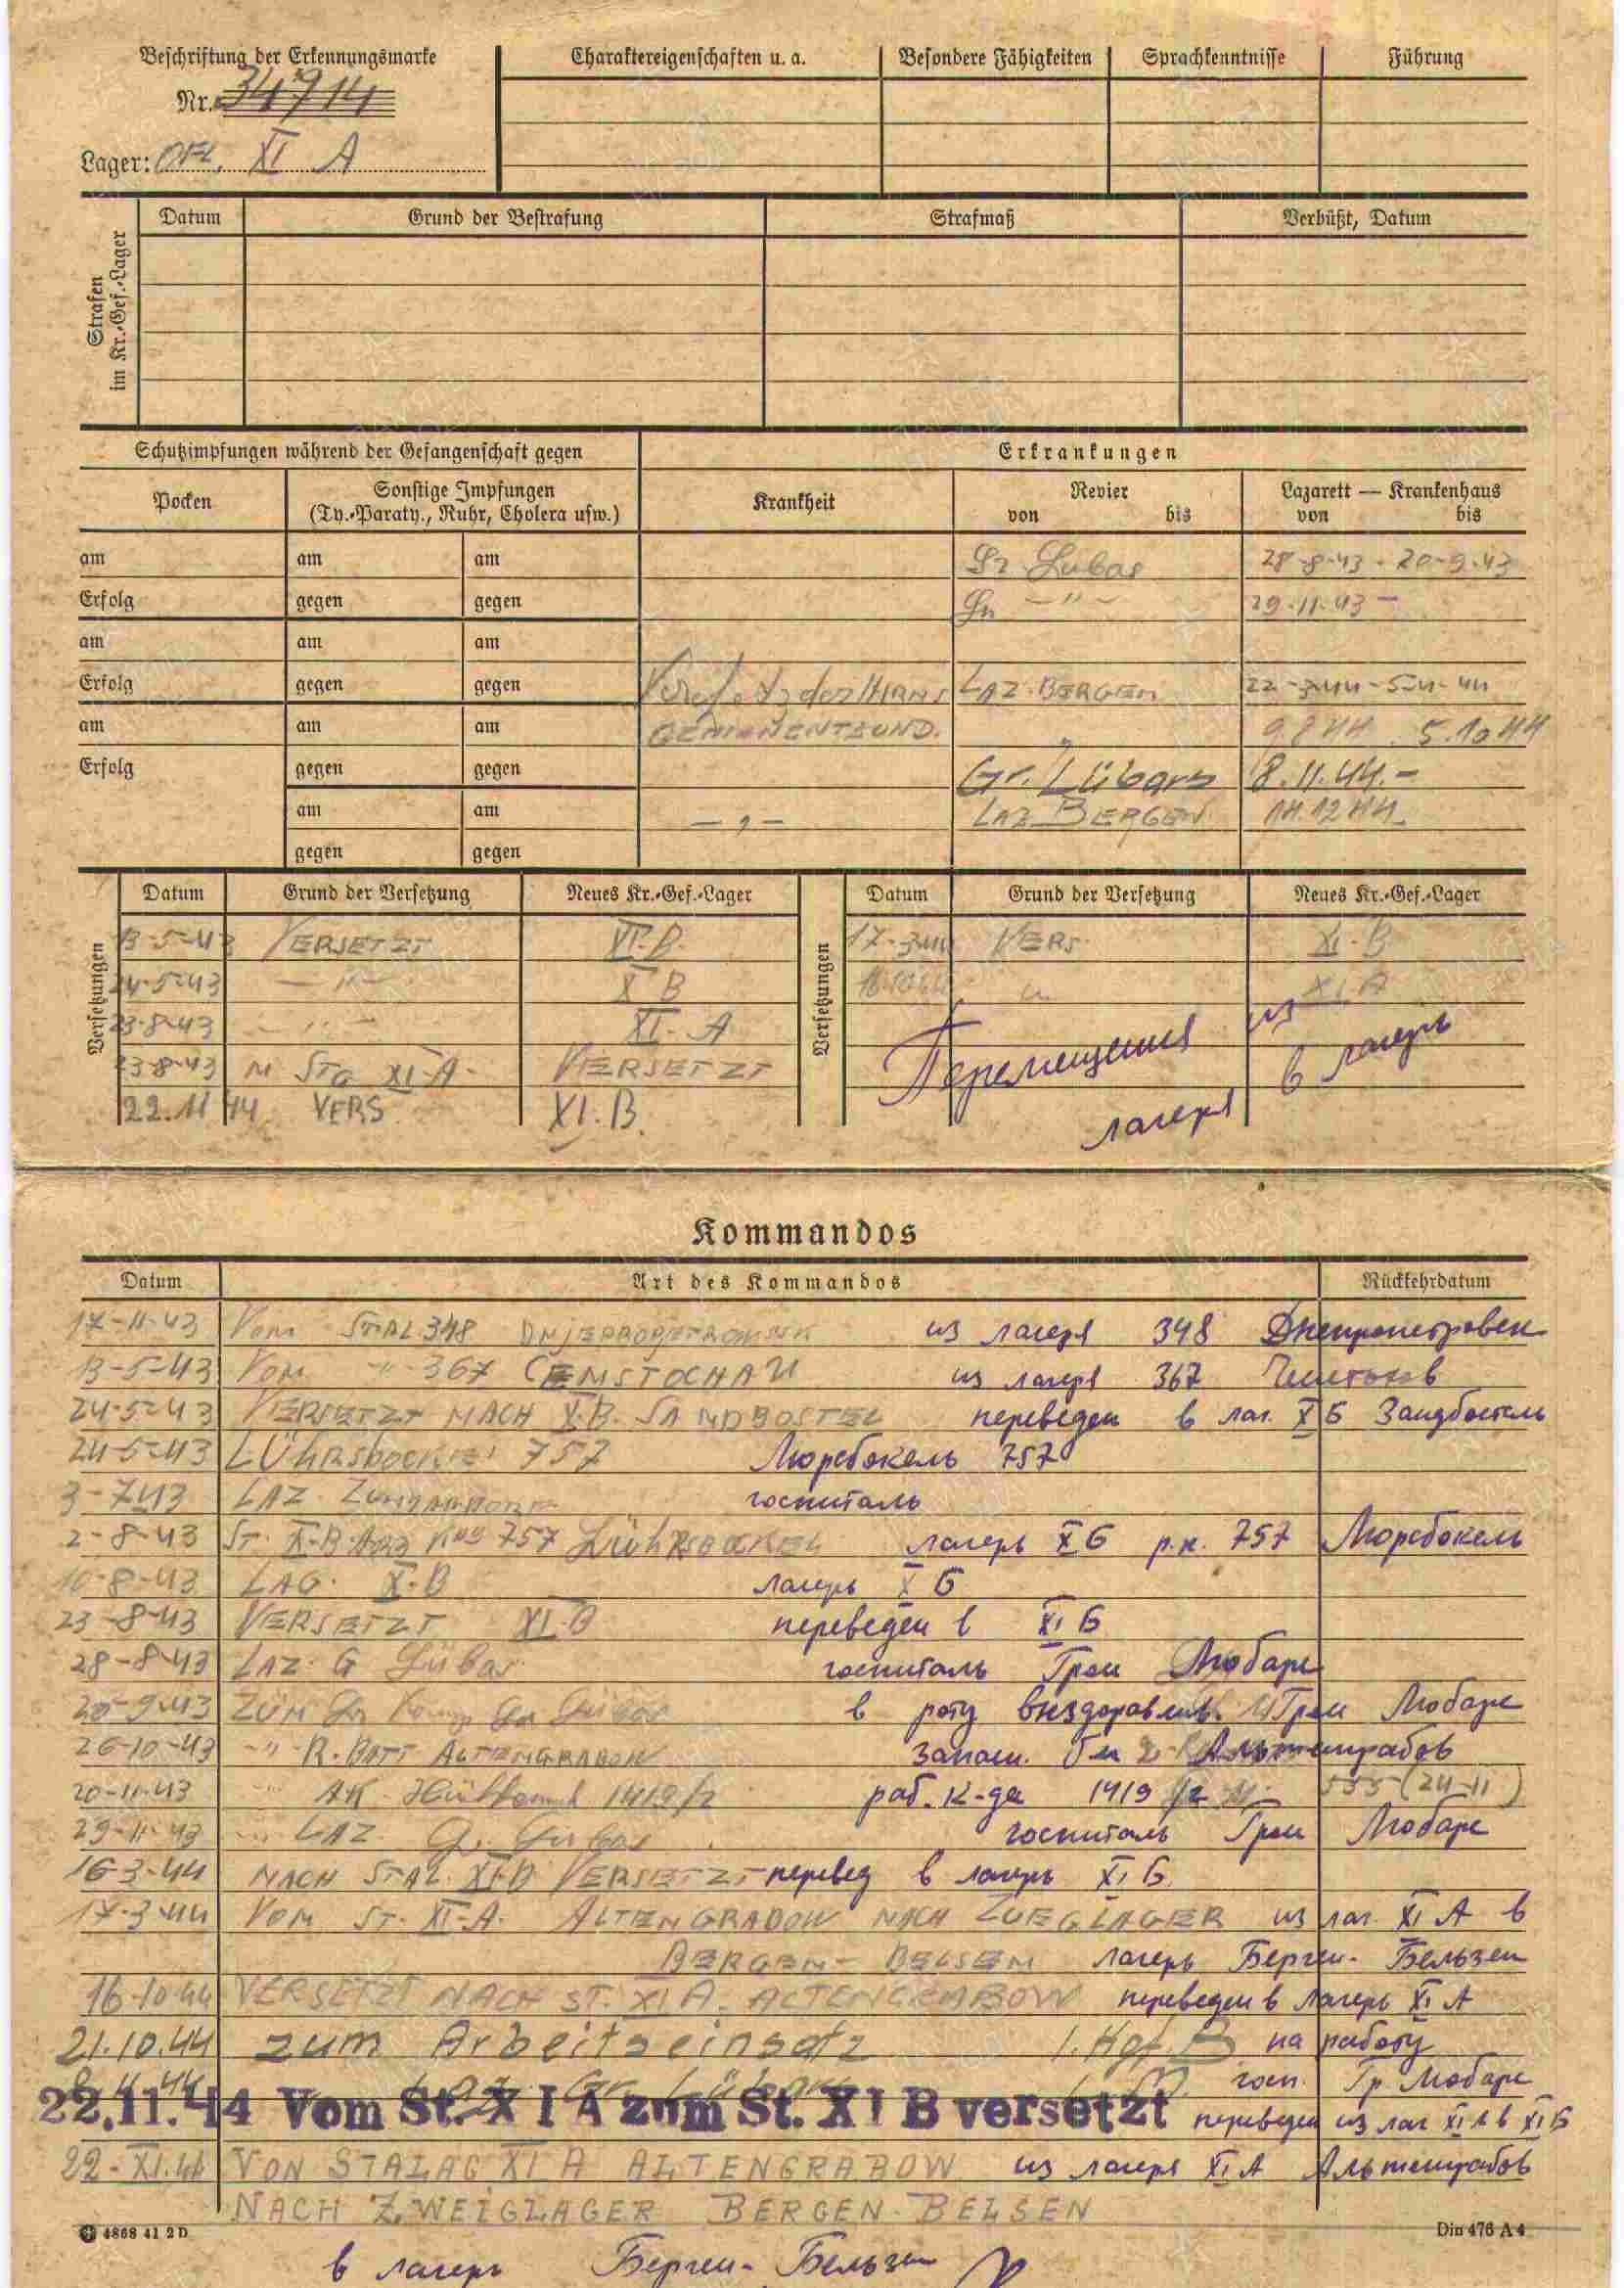 Beschriftung der Erkennungsmarke
Nr. 34914
Lager: Ofl. XI A
Charaktereigenschaften u. a.
Besondere Fähigkeiten
Sprachkenntnisse
Führung
Strafen
im Kr.-Gef.-Lager
Datum
Grund der Bestrafung
Strafmaß
Verbüßt, Datum
Schutzimpfungen während der Gefangenschaft gegen
Erkrankungen
Pocken
Sonstige Impfungen
(Ty.-Paraty., Ruhr, Cholera usw.)
Krankheit
Revier
von bis
Lazarett — Krankenhaus
von bis
am am am Gr Lubas 28-8-43 - 20-9-43
Erfolg gegen gegen Gr — " — 29-11-43 —
am am am
Erfolg gegen gegen LAZ. BERGEN 22-3-44-5-4-44
am am am " 9.8.44 5.10.44
Erfolg gegen gegen Gr. Lübars 8.11.44.-
am am — „ — LAZ BERGEN 14.12.44.
gegen gegen
Versetzungen
Datum Grund der Versetzung Neues Kr.-Gef.-Lager
13-5-43 VERSETZT XI-B.
24-5-43 — " — X B
23-8-43 — " — XI-A
23-8-43 N STG XI-A- VERSETZT
22.11.44 VERS. XI.B.
Versetzungen
Datum Grund der Versetzung Neues Kr.-Gef.-Lager
17-3-44 VERS. XI-B
16.10.44 " XI.A
Перемещения из
лагеря в лагерь
Kommandos
Datum Art des Kommandos Rückkehrdatum
17-11-43 Vom STAL 348 DNJEPROPETROWSK из лагеря 348 Днепропетровск
13-5-43 Vom " 367 CENSTOCHAU из лагеря 367
24-5-43 VERSETZT NACH X.B. SANDBOSTEL переведен в лаг. X Б Зандбостель
24-5-43 LÜHRSBOCKEL 757 Люрсбокель 757
3-7-43 LAZ. госпиталь
2-8-43 ST. X-B 757 LÜHRSBOCKEL лагерь X Б р.к. 757 Люрсбокель
10-8-43 LAG. X-B лагерь X Б
23-8-43 VERSETZT XI-B переведен в XI Б
28-8-43 LAZ. G Lübas. госпиталь Грос Любарс
20-9-43 ZUM Gr Lübas в роту выздоравлив. Грос Любарс
26-10-43 -"- R. BATT ALTENGRABOW запасн. б-н Альтенграбов
20-11-43 " AK 1419/2 раб. к-да 1419/2 555 (24-11)
29-11-43 " LAZ. G. Lubas госпиталь Грос Любарс
16-3-44 NACH STAL. XI-B VERSETZT перевед в лагерь XI Б
17-3-44 VOM ST. XI-A. ALTENGRABOW NACH ZWEGLAGER из лаг. XI А в
BERGEN-BELSEN лагерь Берген-Бельзен
16-10-44 VERSETZT NACH ST. XI A. ALTENGRABOW переведен в лагерь XI А
21.10.44 zum Arbeitseinsatz на работу
8.11.44 Laz. Gr. Lübars госп. Гр. Любарс
22.11.44 Vom St. X I A zum St. X I B versetzt переведен из лаг XI А в XI Б
22-XI.44 VON STALAG XI A ALTENGRABOW из лагеря XI А Альтенграбов
NACH ZWEIGLAGER BERGEN-BELSEN
4868 41 2 D
Din 476 A 4
в лагерь Берген-Бельзен